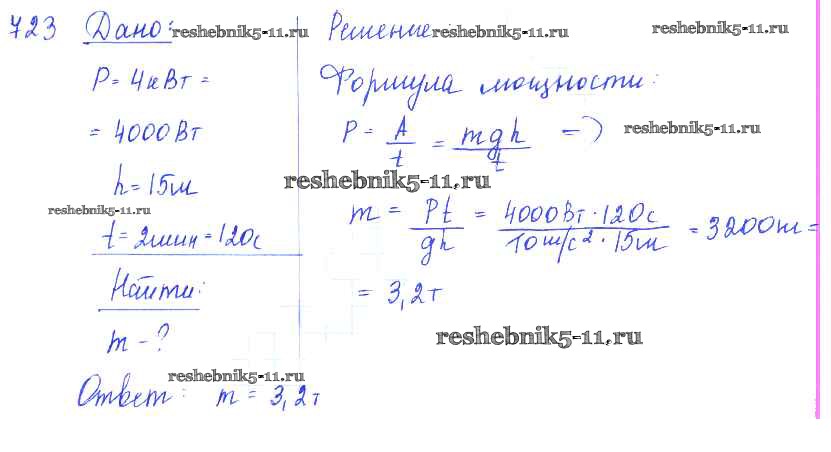 723 Дано: reshebnik5-11.ru
P = 4кВт =
= 4000Вт
h = 15м
reshebnik5-11.ru
t = 2мин = 120с
Найти:
m - ?
Решение reshebnik5-11.ru reshebnik5-11.ru
Формула мощности:
P = A/t = mgh/t => reshebnik5-11.ru
reshebnik5-11.ru
m = Pt/gh = 4000Вт·120с/10м/с²·15м = 3200кг =
= 3,2т
reshebnik5-11.ru
reshebnik5-11.ru
Ответ: m = 3,2т